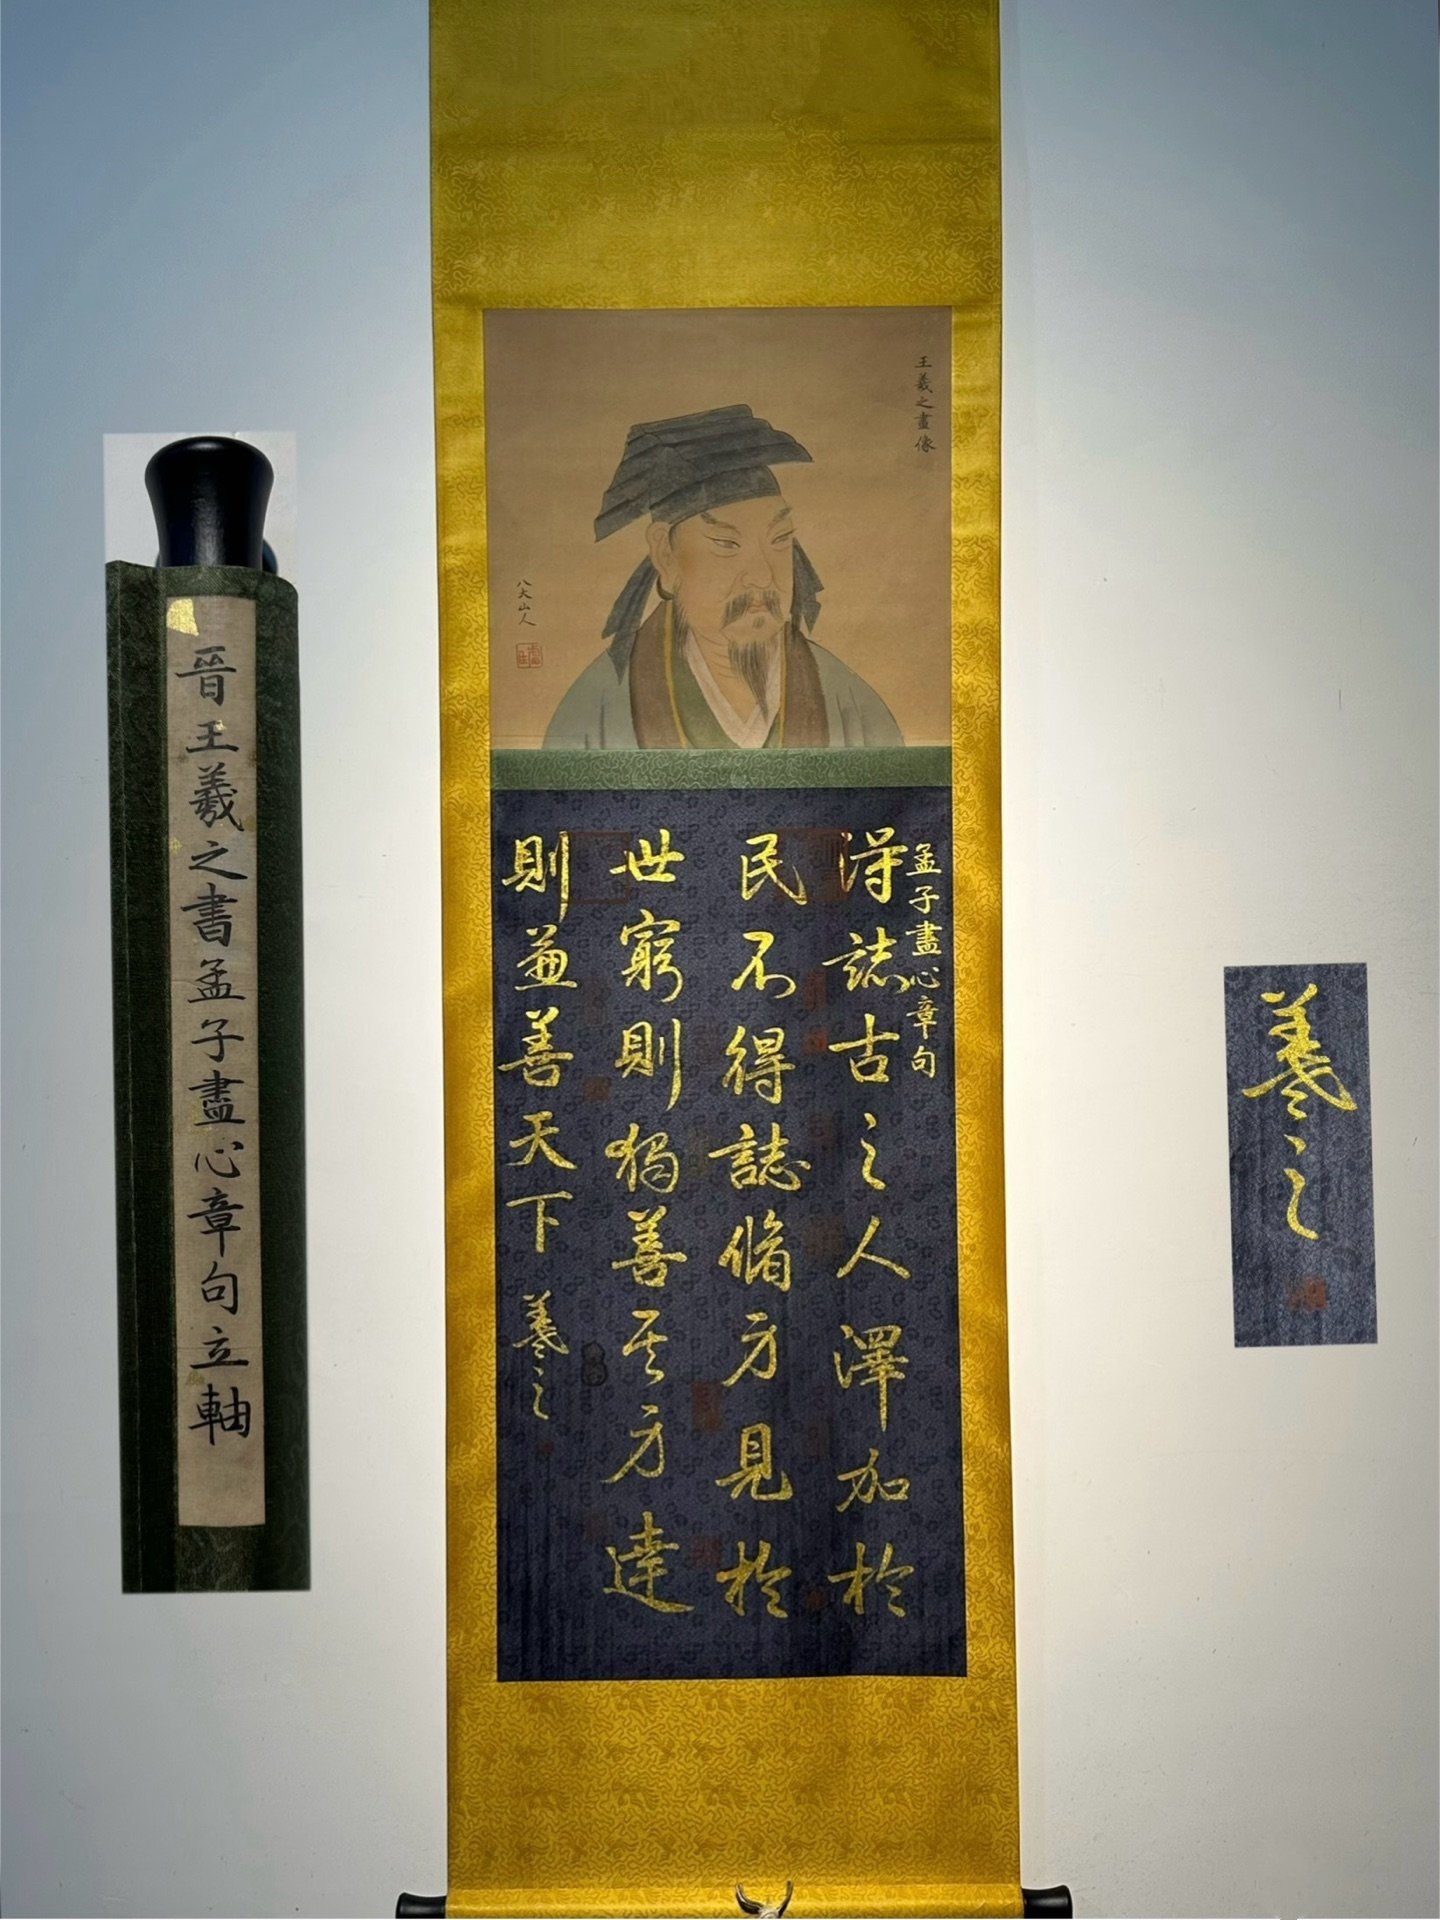 王羲之畫像
八大山人
孟子盡心章句
得誌古之人澤加於
民不得誌脩身見於
世窮則獨善其身達
則兼善天下 羲之
晉王羲之書孟子盡心章句立軸
羲之